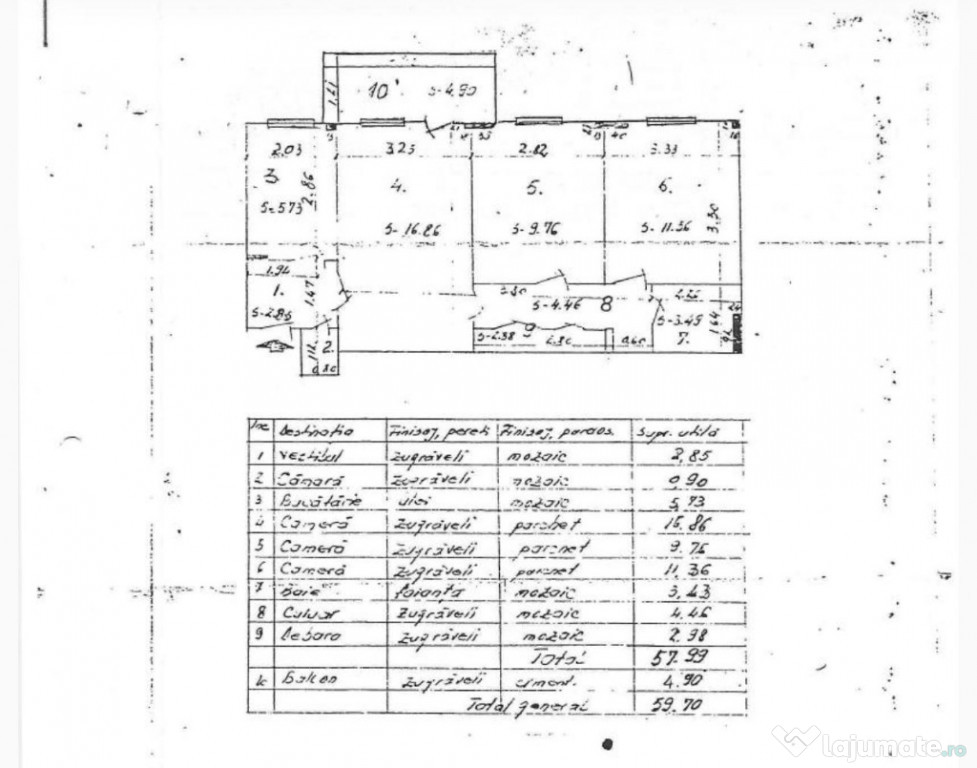 10 S-4.90
1.21
2.03 3.23 2.82 3.33
3. 2.86 4. 5. 6.
S=5.73 S-16.86 S-9.76 S-11.36 3.30
1.94
1. 1.47
S-2.85
S-4.46 8
S-3.45 1.64
9
S-2.98 2.80 0.60 7.
2.
0.80
Destinatia Finisaj, pereti Finisaj, pardos. Supr. utilă
1 Vestibul Zugrăveli mozaic 2,85
2 Cămară Zugrăveli mozaic 0.90
3 Bucătărie ulei mozaic 5,73
4 Cameră Zugrăveli parchet 16,86
5 Cameră Zugrăveli parchet 9.76
6 Cameră Zugrăveli parchet 11,36
7 Baie faianta mozaic 3,43
8 Culoar Zugrăveli mozaic 4.46
9 Debara Zugrăveli mozaic 2.98
Total 57.99
Balcon Zugrăveli ciment. 4.90
Total general 59.70
lajumate.ro